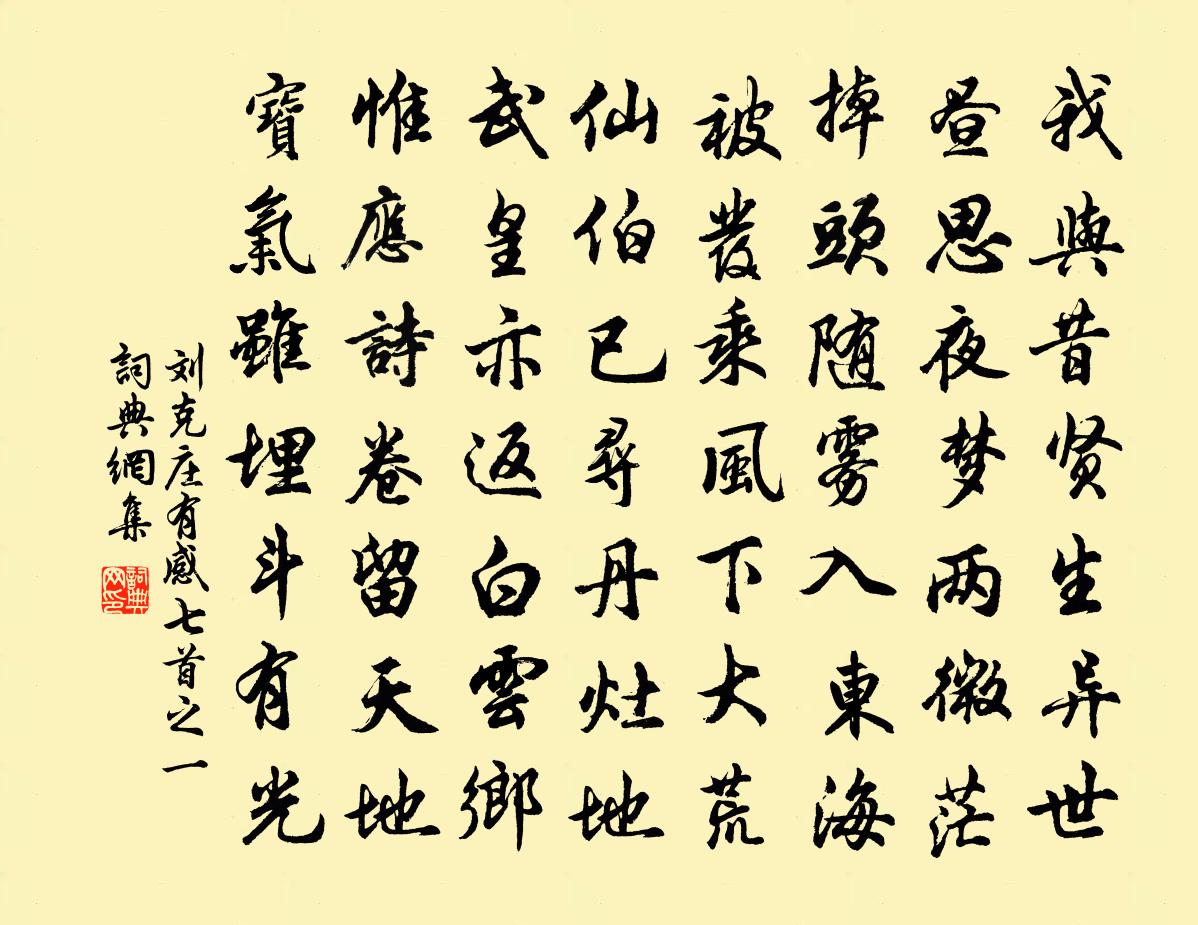 我與昔贤生异世
昼思夜梦两微茫
掉頭随雾入東海
被發乘風下大荒
仙伯已尋丹灶地
武皇亦返白雲鄉
惟應詩卷留天地
寶氣雖埋斗有光
刘克庄有感七首之一
詞典網集
詞典
网印